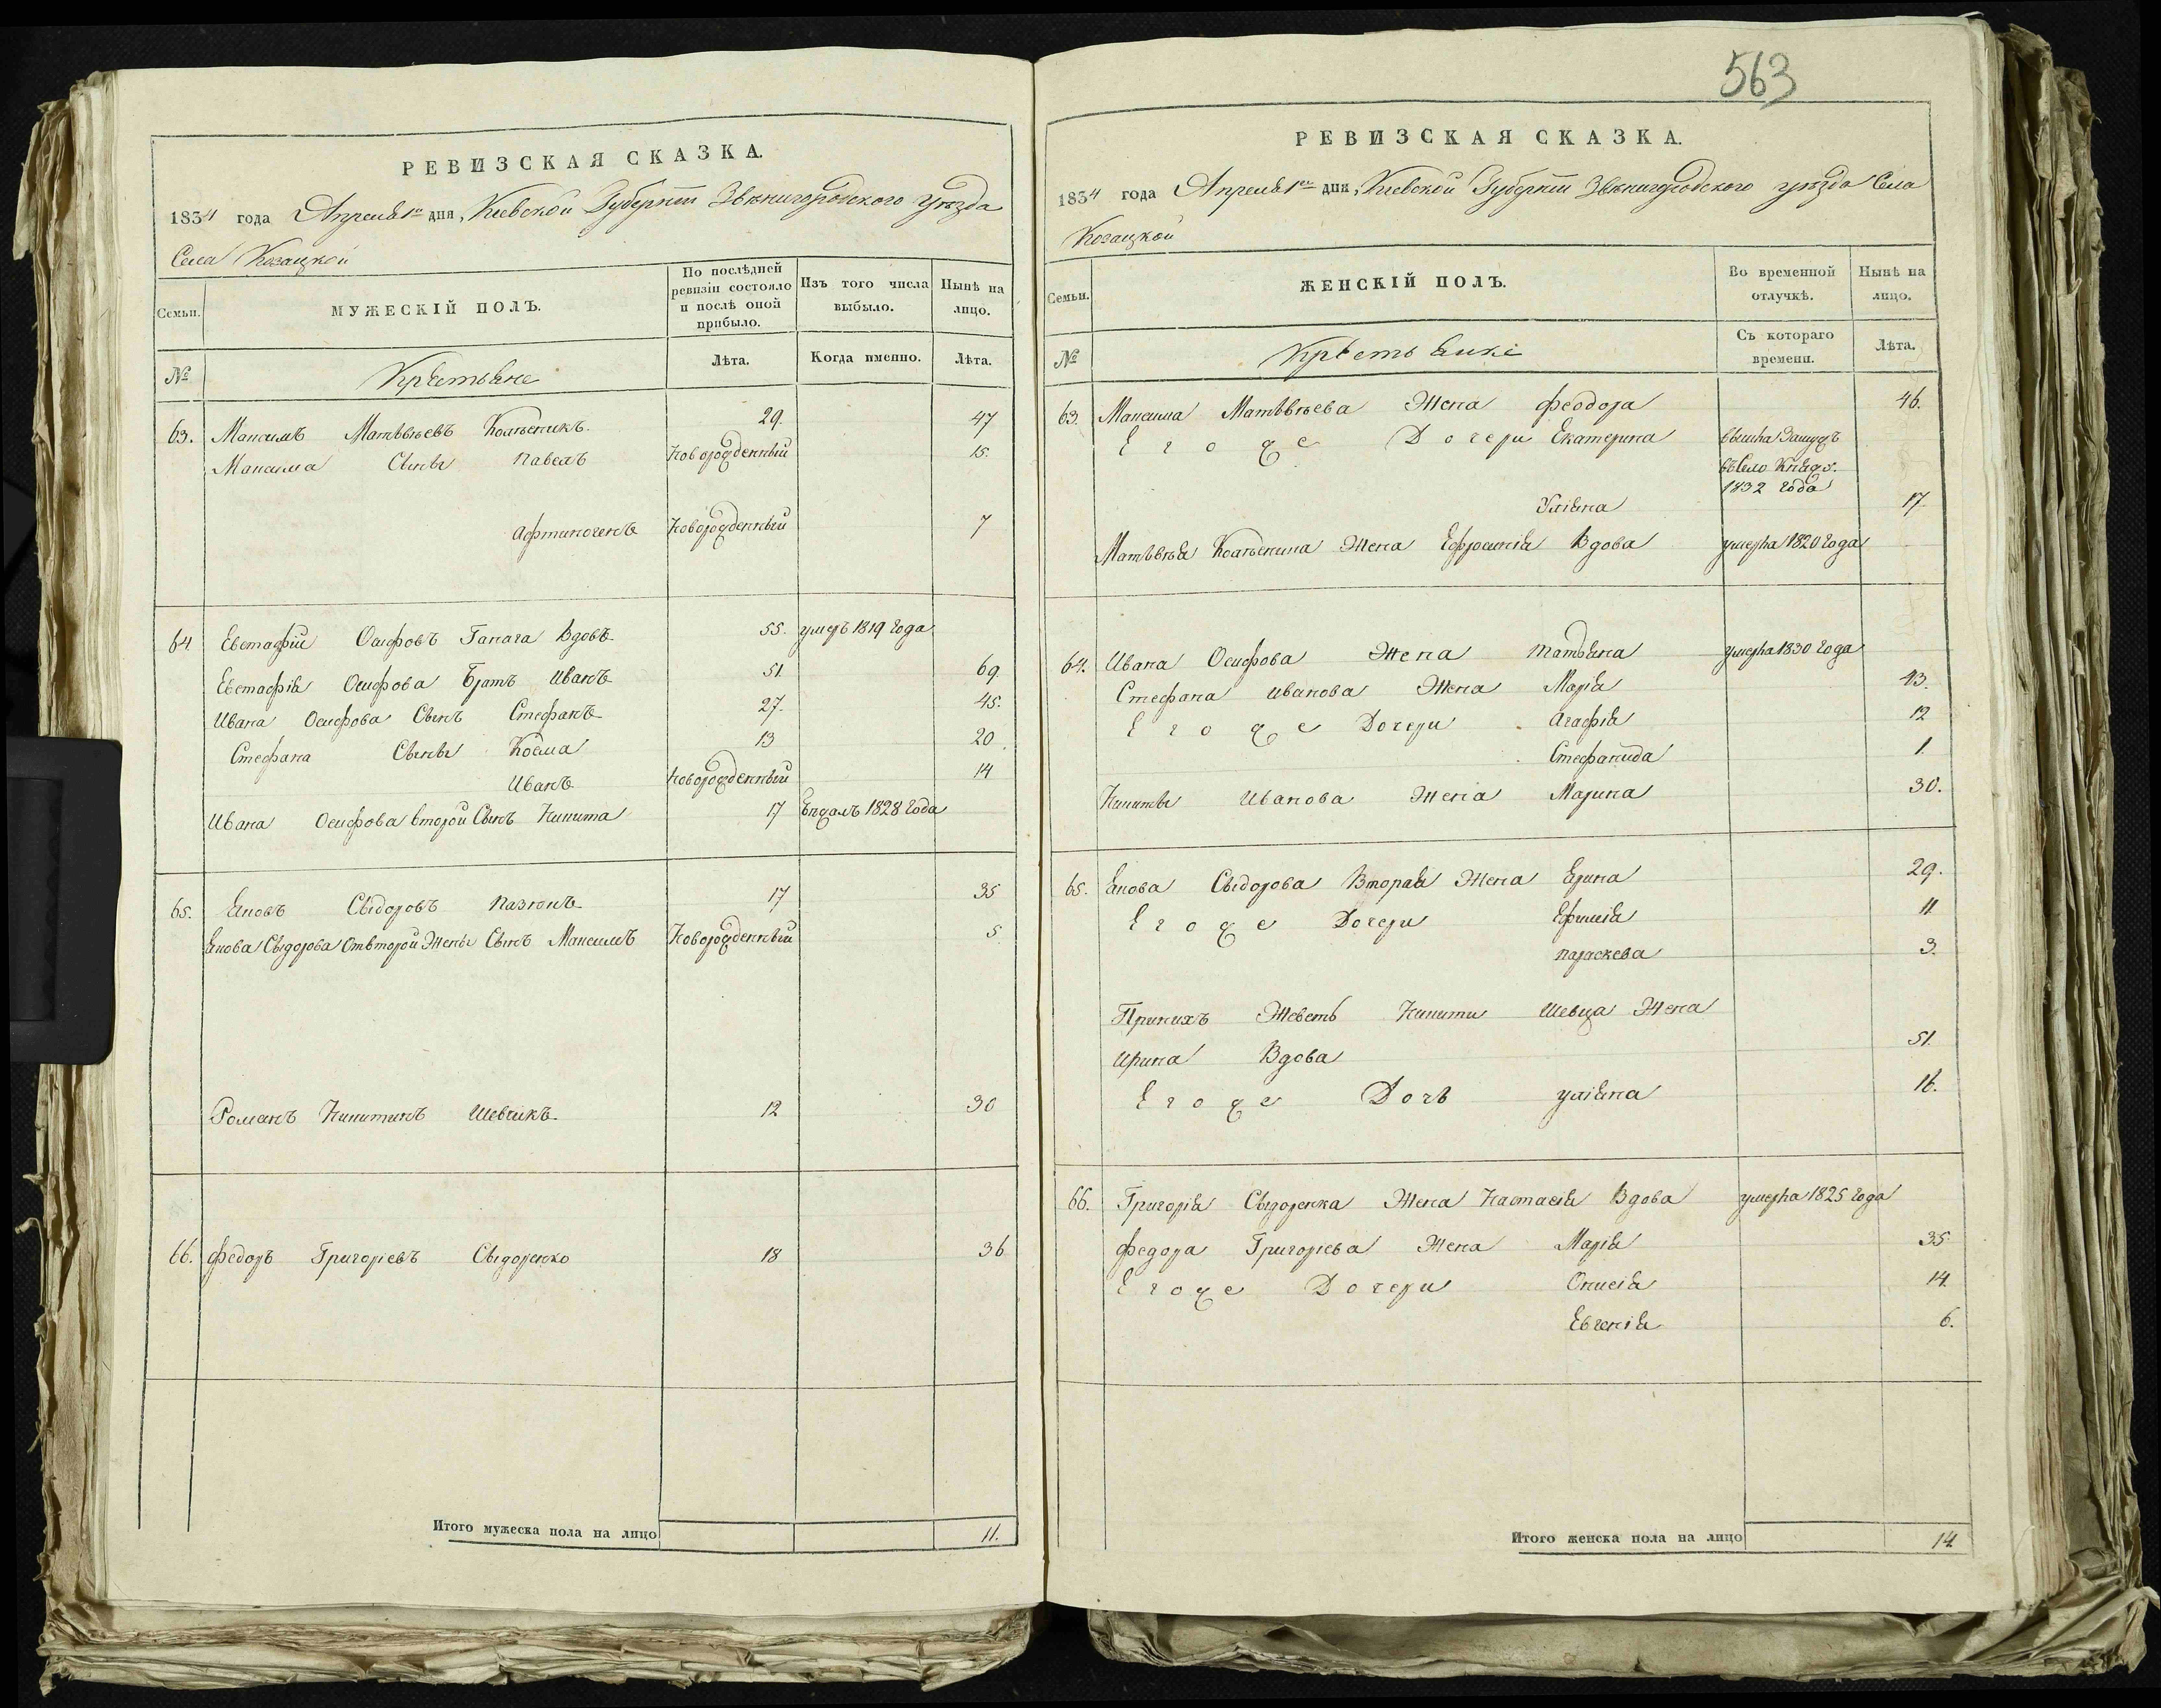 РЕВИЗСКАЯ СКАЗКА.
1834 года Апреля 1го дня, Киевской Губернии Звенигородского уезда
Села Козацкой
Семьи.
МУЖЕСКІЙ ПОЛЪ.
По послѣдней ревизіи состояло и послѣ оной прибыло.
Изъ того числа выбыло.
Нынѣ на лицо.
№
Крестьяне
Лѣта.
Когда именно.
Лѣта.
63. Максимъ Матвѣевъ 29. 47
Максима Сыны Павелъ Новорожденный 15.
Афтиногенъ Новорожденный 7
64 Евстафій Осифовъ Гапага Вдовъ 55. умеръ 1819 года
Евстафія Осифова Братъ Иванъ 51. 69
Ивана Осифова Сынъ Стефанъ 27. 45.
Стефана Сыны Косма 13 20.
Иванъ Новорожденный 14
Ивана Осифова второй Сынъ Никита 17 1828 года
65. Яковъ Сыдоровъ Пазюнъ 17 35
Якова Сыдорова От второй Жены Сынъ Максимъ Новорожденный 5.
Романъ Никитинъ Шевчикъ 12 30
66. Федоръ Григоріевъ Сыдоренко 18 36
Итого мужеска пола на лицо 11.
563
РЕВИЗСКАЯ СКАЗКА.
1834 года Апреля 1го дня, Киевской Губернии Звенигородского уезда Села
Козацкой
Семьи.
ЖЕНСКІЙ ПОЛЪ.
Во временной отлучкѣ.
Нынѣ на лицо.
№
Крестьянкі
Съ котораго времени.
Лѣта.
63. Максима Матвѣева Жена Феодора 46.
Его же Дочери Екатерина вышла Замужъ
въ Село
1832 года
Уліяна 17
Матвѣя Жена Ефросинія Вдова умерла 1820 года
64. Ивана Осифова Жена Татьяна умерла 1830 года
Стефана Иванова Жена Марія 43.
Его же Дочери Агафія 12
Стефанида 1
Никиты Иванова Жена Марина 30.
65. Якова Сыдорова Вторая Жена Ярина 29.
Его же Дочери Ефимія 11
Параскева 3.
При нихъ Жеветь Никити Шевца Жена
Ирина Вдова 51.
Его же Дочь Уліяна 16.
66. Григорія Сыдоренка Жена Настасія Вдова умерла 1825 года
Федора Григоріева Жена Марія 35
Его же Дочери Онисія 14.
Евгенія 6.
Итого женска пола на лицо 14